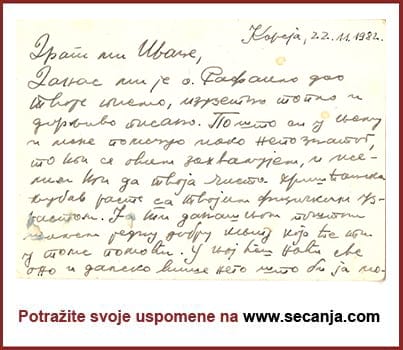 Кареја, 22.11.1982.
Драги ми Иване,
Данас ми је о. Рафаило дао
твоје писмо, изузетно топло и
писано. Пошто си у њему
и мене поменуо иако непознатог,
то ти се овим захваљујем, и
ти да твоја чиста хришћанска
љубав расте са твојим физичким уз-
растом. Ја ти данашњом поштом
једну добру књигу која ће ти
у томе помоћи. У њој ћеш наћи све
оно и далеко више него што би ја мо-
Potražite svoje uspomene na www.secanja.com.